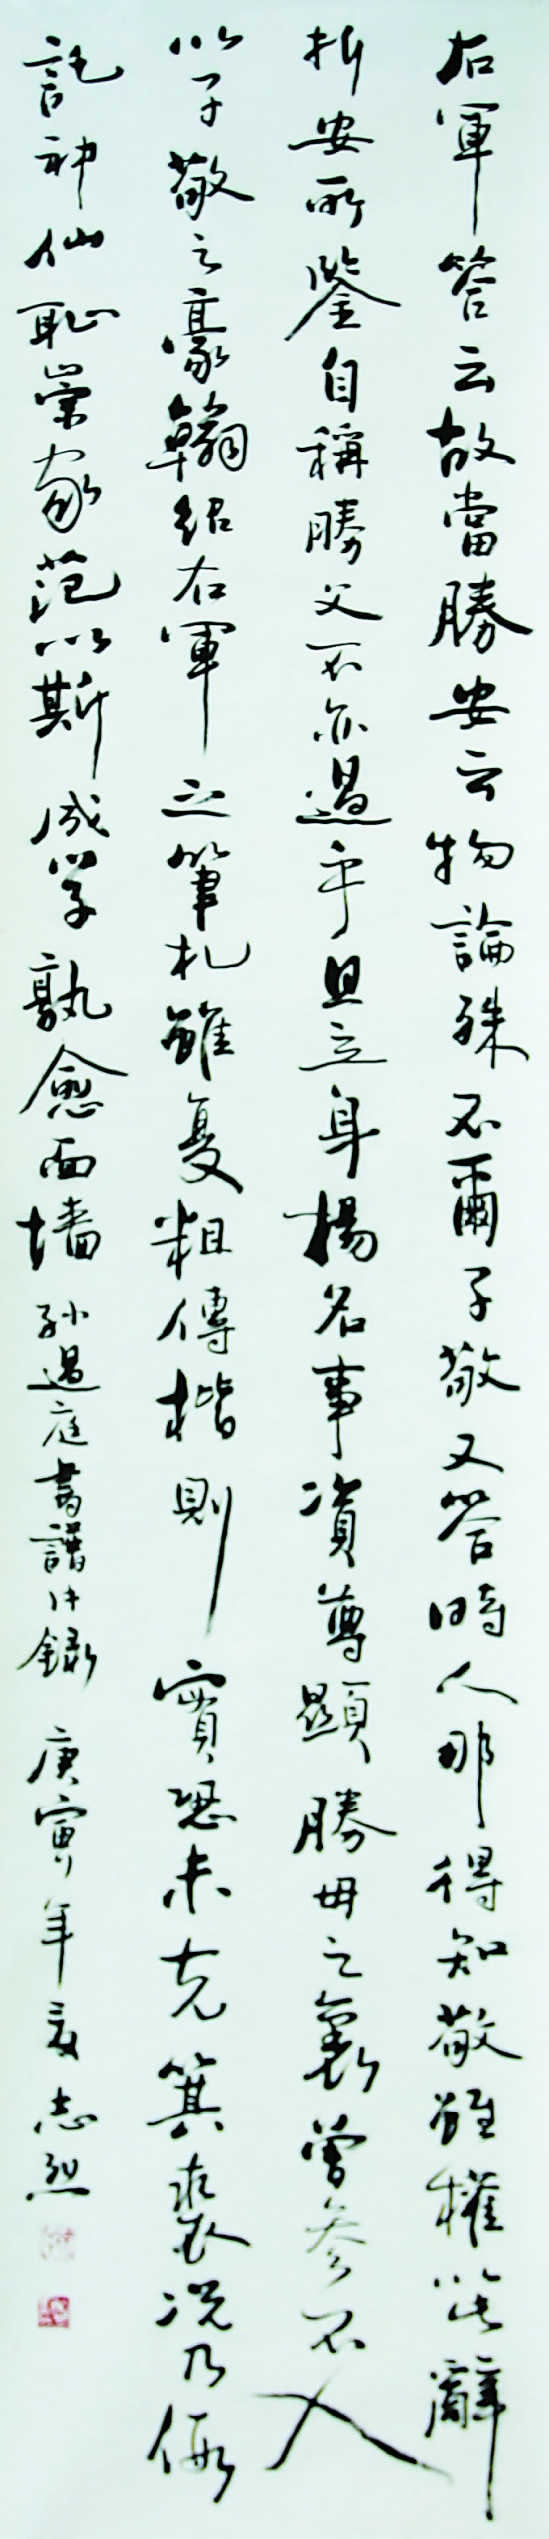 右軍答云故當勝安云物論殊不爾子敬又答時人那得知敬雖權以此辭
折安所鑒自稱勝父不亦過乎且立身揚名事資尊顯勝母之裏曾參不入
以子敬之豪翰紹右軍之筆札雖复粗傳楷則實恐未克箕裘況乃假
託神仙恥崇家范以斯成學孰愈面墙孫過庭書譜片錄 庚寅年夏志烈